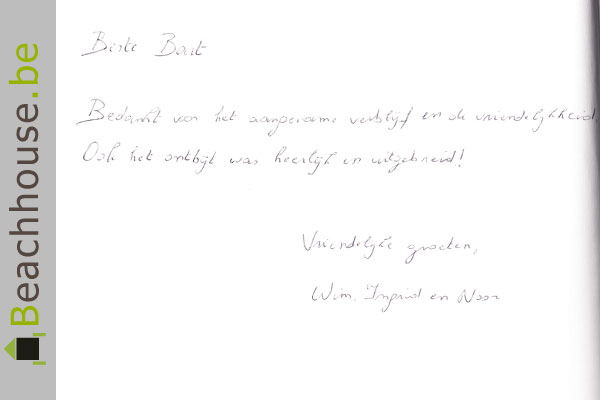 Beachhouse.be
Beste Bart
Bedankt voor het aangename verblijf en de vriendelijkheid.
Ook het ontbijt was heerlijk en uitgebreid!
Vriendelijke groeten,
Wim, Ingrid en Noor